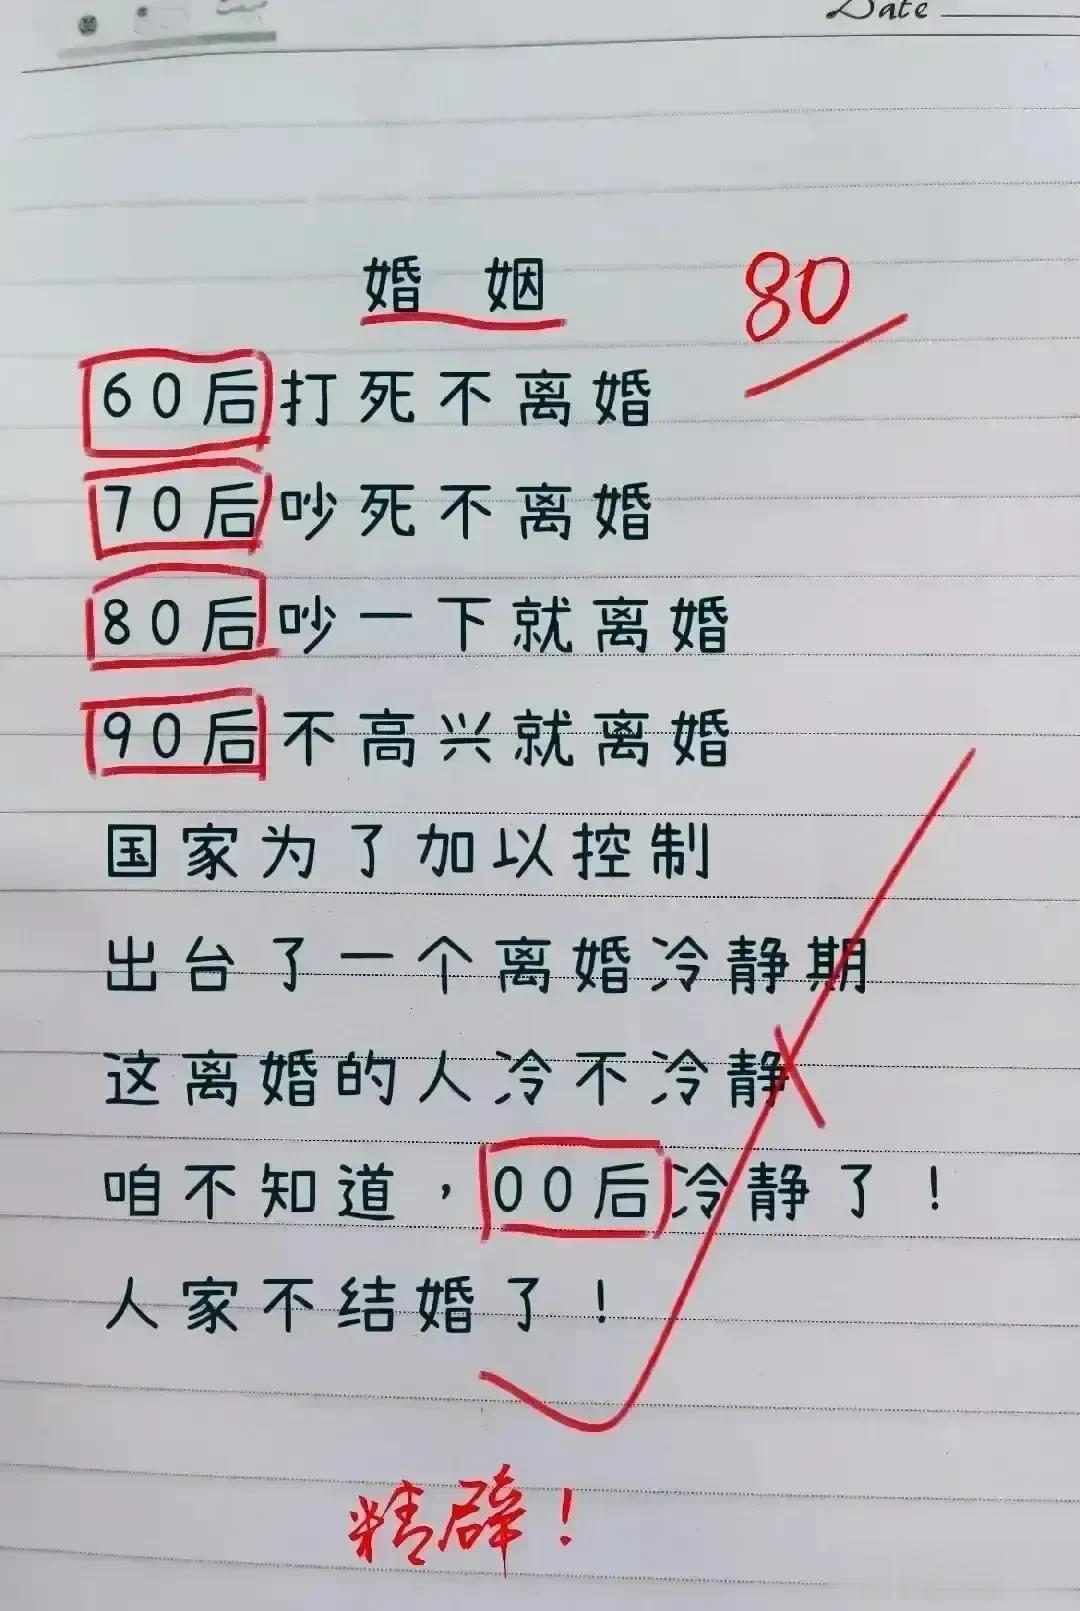 Date
婚 姻
80
60后打死不离婚
70后吵死不离婚
80后吵一下就离婚
90后不高兴就离婚
国家为了加以控制
出台了一个离婚冷静期
这离婚的人冷不冷静
咱不知道，00后冷静了！
人家不结婚了！
精辟！